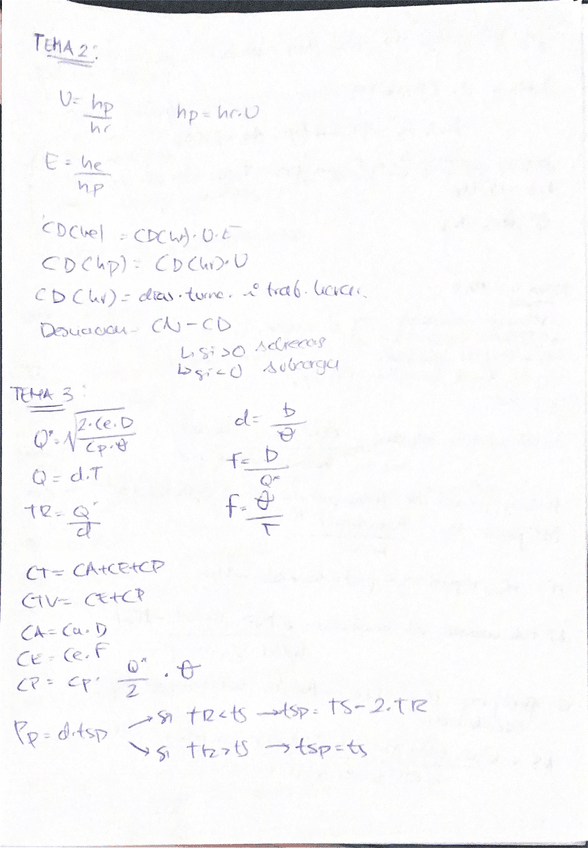 TEMA 2:
U = hp/hr    hp = hr·U
E = he/hp
CD(he) = CD(hr)·U·E
CD(hp) = CD(hr)·U
CD(hr) = días·turno· trab.
CN - CD
↳ si > 0
↳ si < 0
TEMA 3:
Q* = √(2·Ce·D / Cp·θ)    d = D/θ
Q = d·T    f = D/Q*
TR = Q*/d    f = θ/T
CT = CA+CE+CP
CTV = CE+CP
CA = Cu·D
CE = Ce·F
CP = Cp· Q*/2 · θ
Pp = d·tsp → si TR < ts → tsp = TS - 2·TR
↘ si TR > ts → tsp = ts